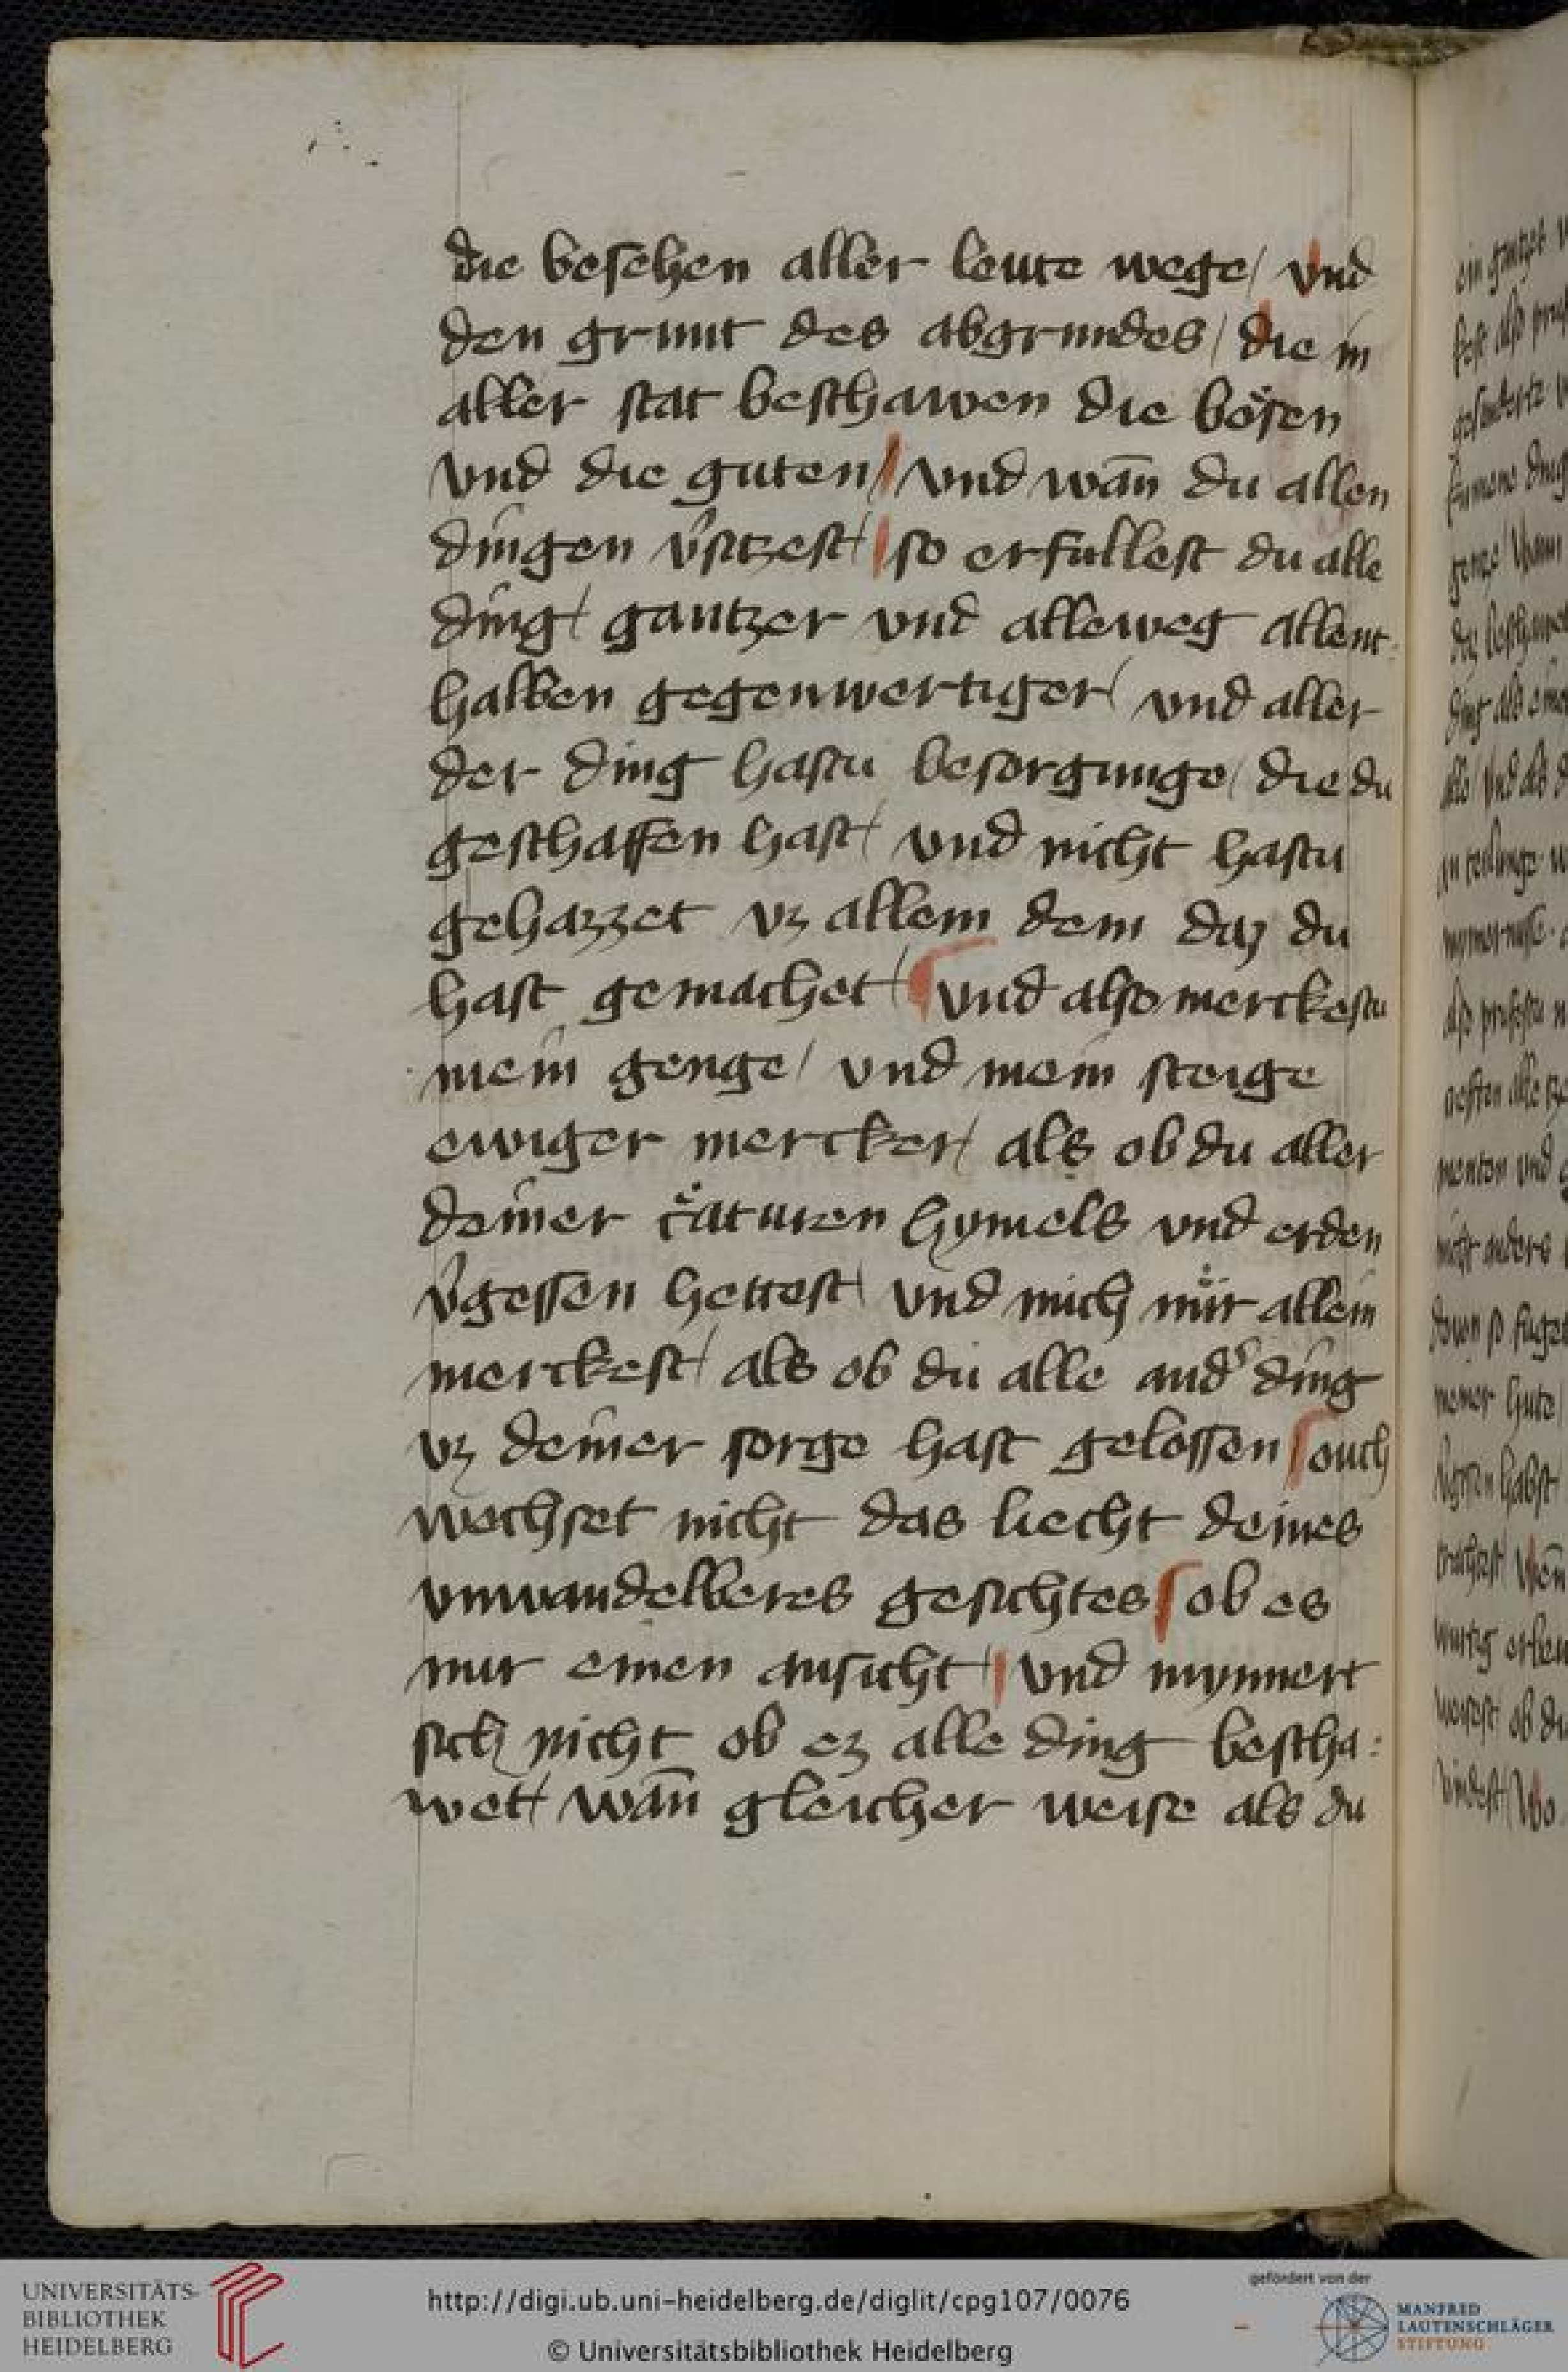 die besehen aller leute wege / vnd
den grunt des abgrundes / die in
aller stat beschawen die bösen
vnd die guten / vnd wān du allen
dingen v̕sitzest / so erfullest du alle
ding / gantzer vnd alleweg allent:
halben gegenwertiger / vnd aller
der ding hastu besorgunge / die du
geschaffen hast / vnd nicht hastu
gehazzet vz allem dem daz du
hast gemachet / vnd also merckestu
mein genge / vnd mein steige
ewiger mercker / als ob du aller
deiner c̈äturen hymels vnd erden
v̕gessen hettest / vnd mich nür allein
merckest / als ob du alle and̕ ding
vz deiner sorge hast gelossen ouch
wechset nicht das liecht deines
vnwandelberes gesichtes ob es
nur einen ansicht / vnd mynnert
sich nicht ob ez alle ding bescha:
wet / wān gleicher weise als du
UNIVERSITÄTS-
BIBLIOTHEK
HEIDELBERG
http://digi.ub.uni-heidelberg.de/diglit/cpg107/0076
© Universitätsbibliothek Heidelberg
gefördert von der
MANFRED
LAUTENSCHLÄGER
STIFTUNG